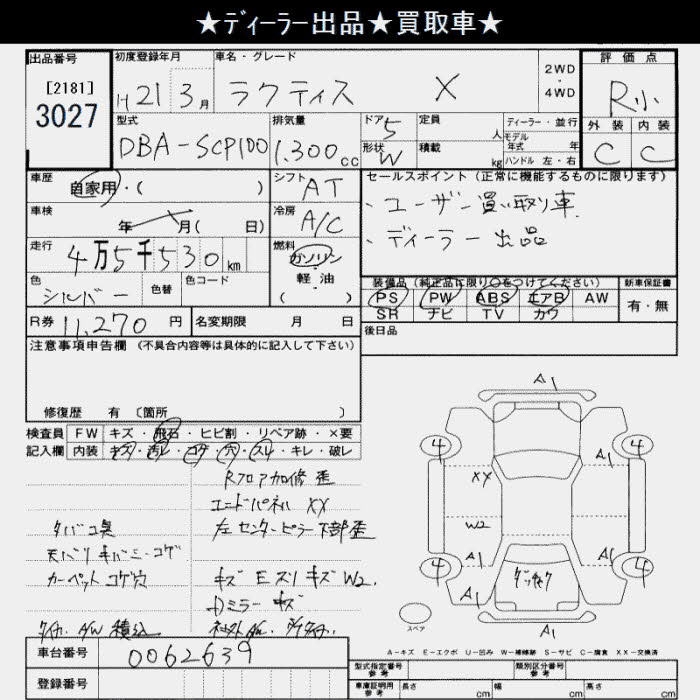 ★ディーラー出品★買取車★
出品番号 初度登録年月 車名・グレード 2WD ・ 4WD 評価点
[2181] 3027 H21 3月 ラクティス X R小
型式 排気量 ドア 5 定員 人 ディーラー・並行 外装 内装
DBA-SCP100 1.300cc 形状 W 積載 kg モデル年式 年式 ハンドル 左・右 C C
車歴 自家用・( ) シフト AT セールスポイント (正常に機能するものに限ります)
車検 年 月( 日) 冷房 A/C ・ユーザー買い取り車
走行 4万5千530km 燃料 ガソリン ・ディーラー出品
色 シルバー 色替 色コード 軽・油 ( )
装備品 (純正品に限り○をつけてください) 新車保証書
PS PW ABS エアB AW 有・無
SR ナビ TV カワ
R券 11,270 円 名変期限 月 日 後日品
注意事項申告欄 (不具合内容等は具体的に記入して下さい)
修復歴 有 〔箇所 〕
検査員 FW キズ・飛石・ヒビ割・リペア跡・×要
記入欄 内装 キズ・汚レ・コゲ・穴・スレ・キレ・破レ
Rフロア加修 歪
エンドパネル XX
タバコ臭 左センターピラー下部歪
天バリ キバミ・コゲ
カーペットコゲ穴 キズ Eスリキズ W2.
ミラーキズ
A/W 積込
A1
4 4
A1
XX
W2
A1 A1
4 4
A1
A1
スペア
A-キズ E-エクボ U-凹み W-補修跡 S-サビ C-腐食 XX-交換済
車台番号 0062639
登録番号
型式指定番号 参考 類別区分番号 参考
車庫証明用 参考 長さ cm 幅 cm 高さ cm